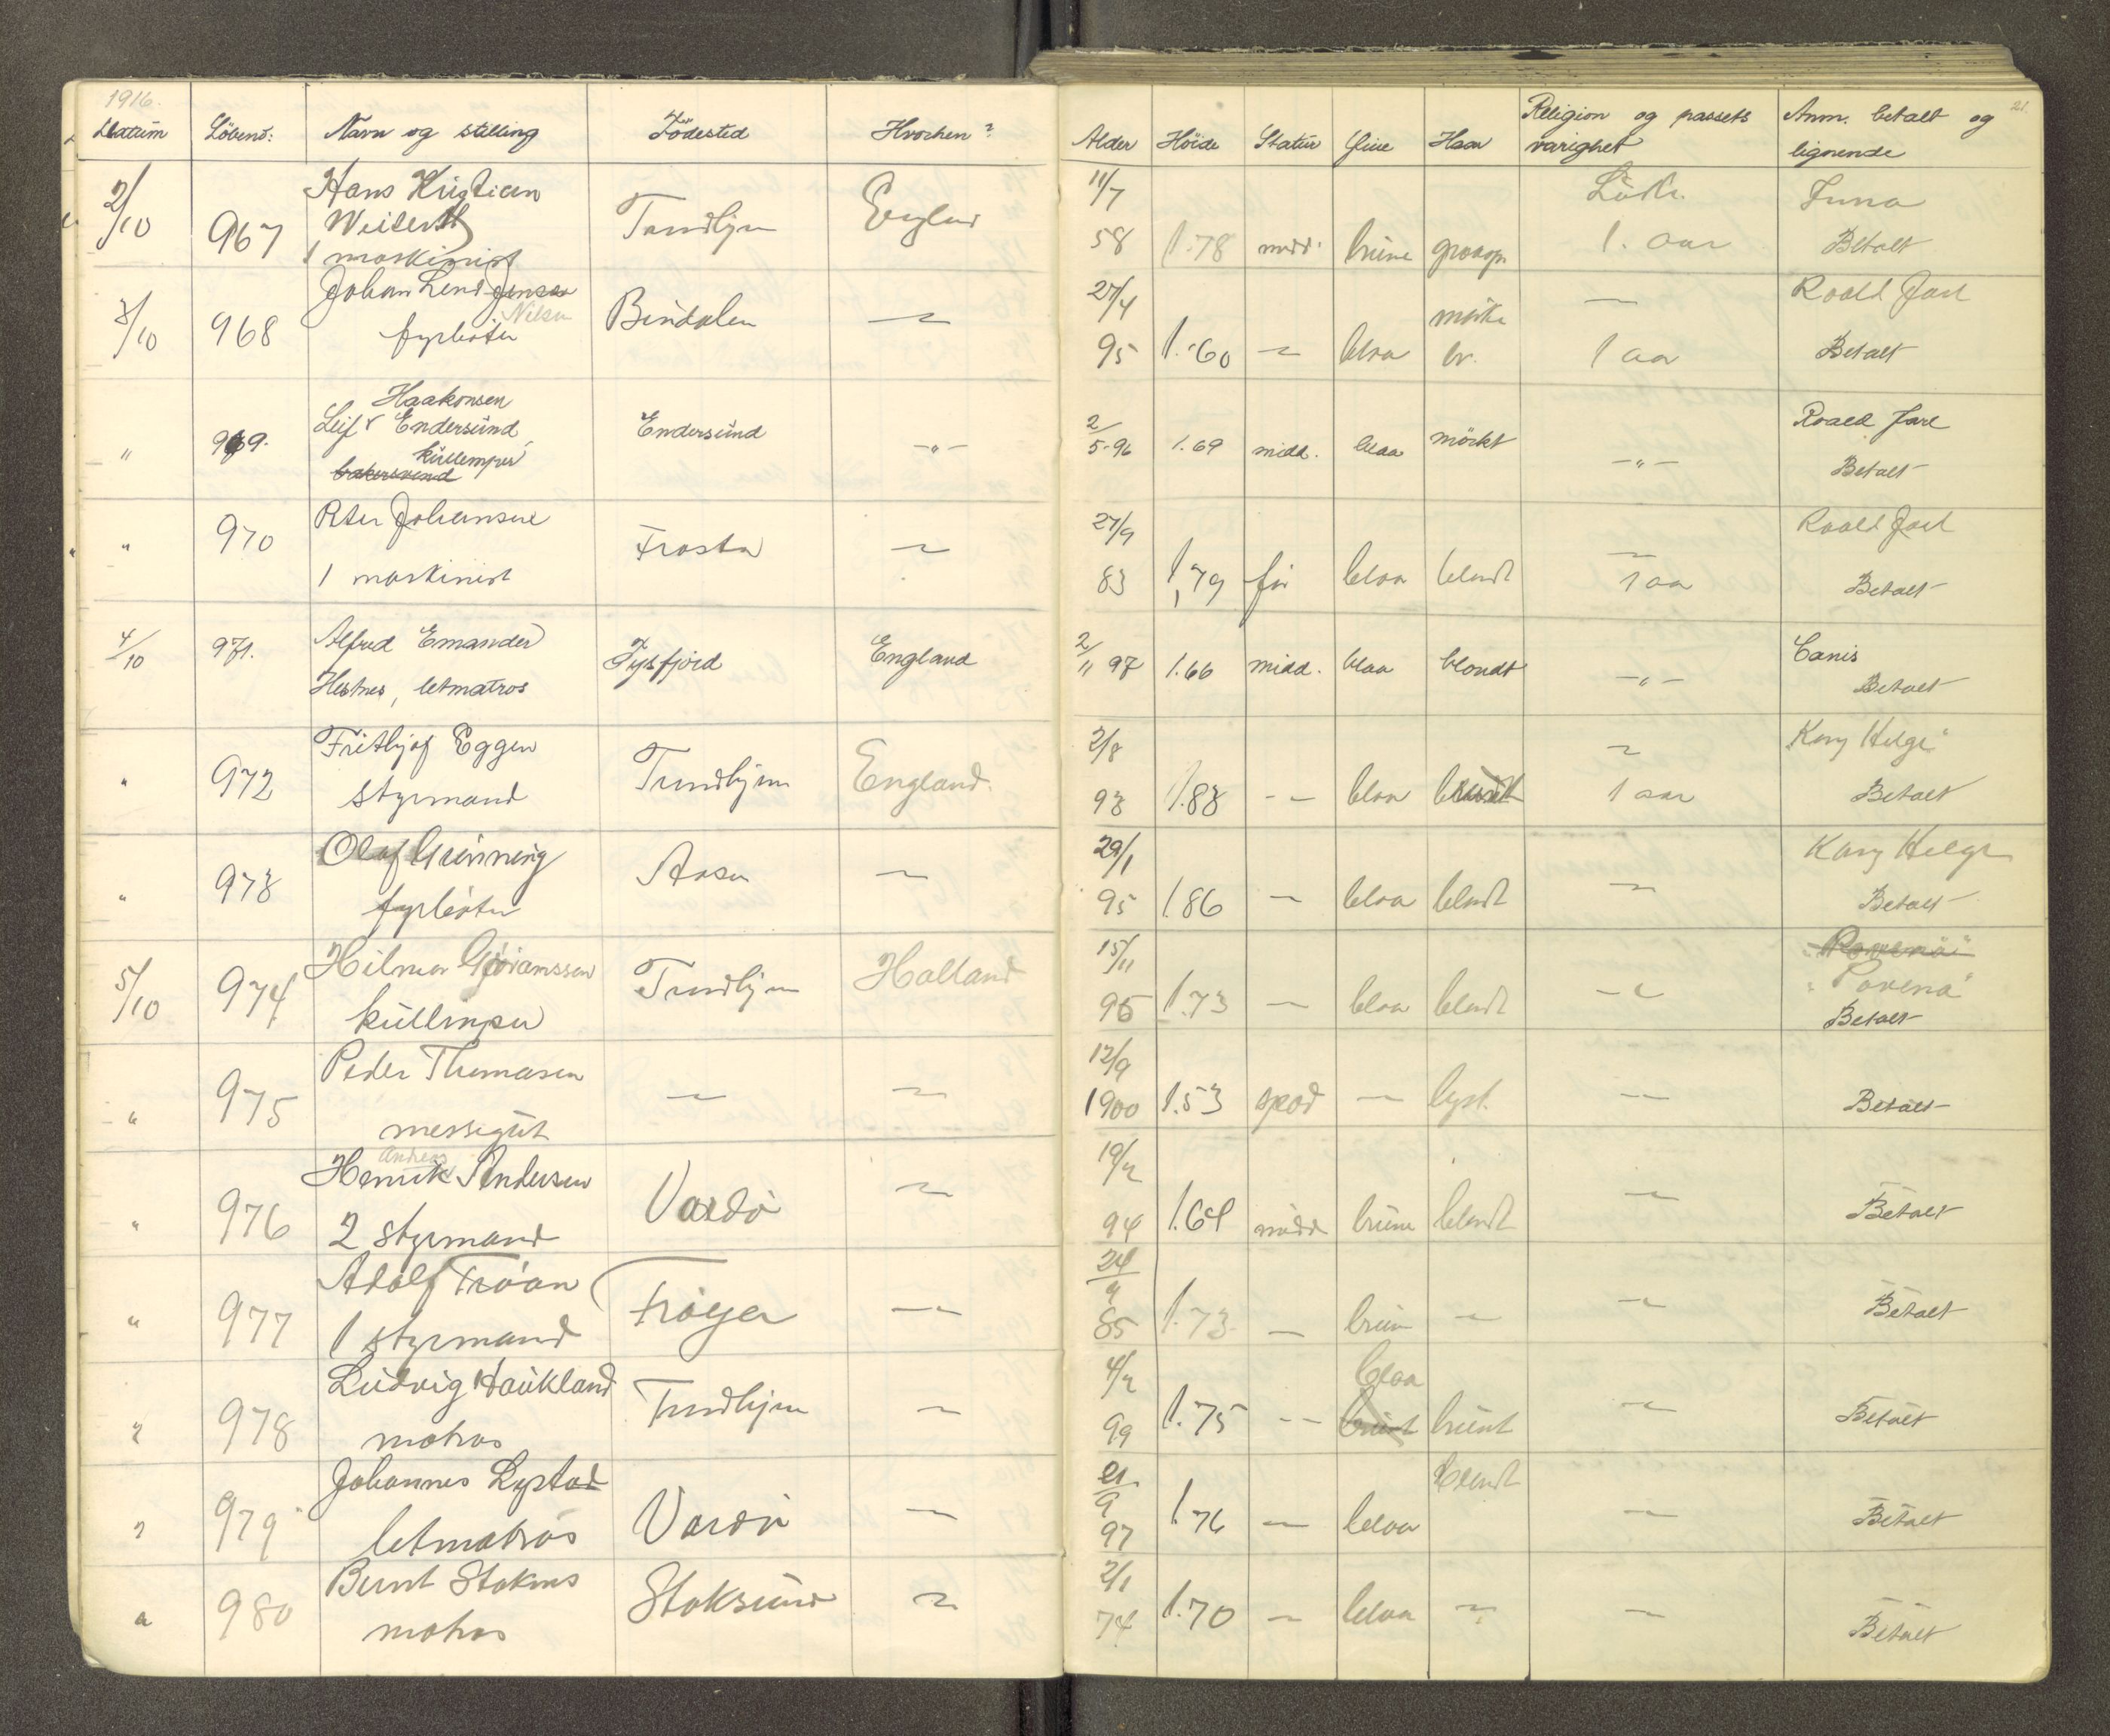 1916.
Datum Löbenö: Navn og stilling Födested Hvorhen? Alder Höide Statur Öine Haar Religion og passets varighet Anm. betalt og lignende 21.
2/10 967 Hans Kristian 11/7 Luth. Juno
Trondhjem England
1 maskinist 58 1.78 midd. brune graaspr. 1. aar Betalt
3/10 968 Johan Jensen 27/4 — Roald Jarl
Nilsen Bindalen — mörke
fyrböter 95 1.60 — blaa br. 1 aar Betalt
" 969. Haakonsen
Leif Endersund Endersund -"- 2/5-96 1.69 midd. blaa mörkt -"- Roald Jarl
küllemper
bakersvend Betalt
" 970 Peter Johansen Frosta — 27/9 Roald Jarl
1 maskinist 83 1,79 för blaa blondt — 1 aar Betalt
4/10 971. Alfred Emander Tysfjord England 2/11 97 1.66 midd. blaa blondt -"- Canis
Hestnes, letmatros Betalt
" 972 Frithjof Eggen Trondhjem England. 2/8 — Kong Helge"
styrmand 93 1.83 -- blaa 1 aar Betalt
" 973 Olaf Grönning Aasen — 29/1 Kong Helge
fyrböter 95 1.86 — blaa blondt — Betalt
5/10 974 Hilmar Trondhjem Holland 15/11 "Rovena"
küllemper 96 1.73 — blaa blondt — "Rovena"
Betalt
" 975 Peder Thomasen — — 12/9
messegut 1900 1.53 spæd — lyst. — Betalt
Andreas
" 976 Henrik Andersen Vardö — 19/2
2 styrmand 94 1.64 midd brune blondt — Betalt
" 977 Adolf Fröan Fröyen — 24
1 styrmand 85 1.73. — brun — — Betalt
" 978 Ludvig Haukland Trondhjem — 4/2 blaa
matros 99 1.75 -- brunt brunt — Betalt
" 979 Johannes Lystad Vardö — 21/9 blondt
letmatros 97 1.76 — blaa — Betalt
" 980 Bernt Stoknes Stoksund — 2/1
matros 74 1.70 — blaa — — Betalt